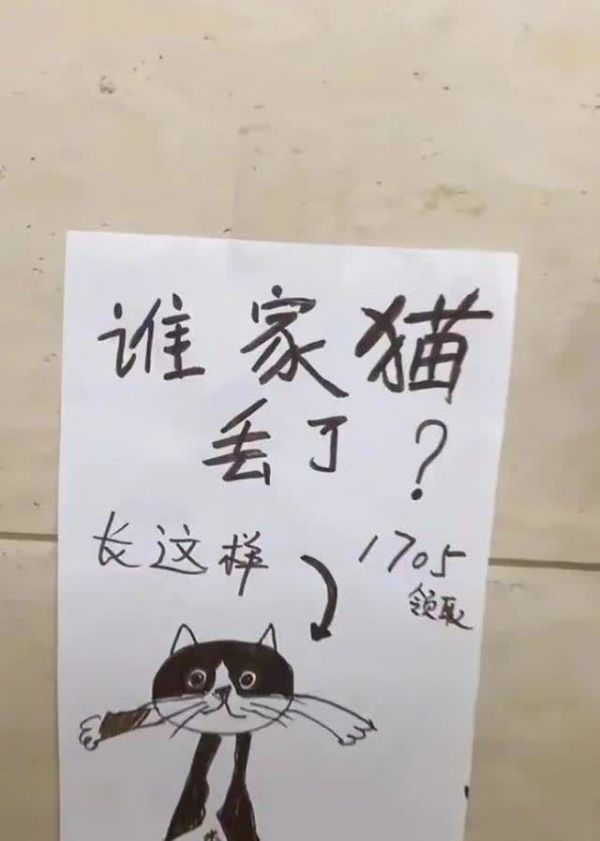 谁家猫
丢了？
长这样
1705
领取